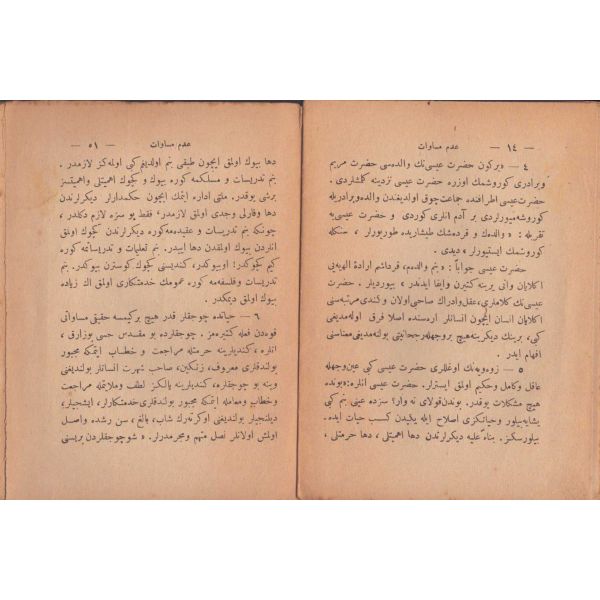 — ١٤ — عدم مساوات
٤ — «بركون حضرت عيسى‌نك والده‌سى حضرت مريم
وبرادرى كوروشمك اوزره حضرت عيسى نزدينه كلشلردى.
حضرت عيسى اطرافنده جماعت چوق اولديغندن والده وبرادريله
كوروشه‌ميورلردى بر آدم انلرى كوردى و حضرت عيسى‌يه
تقربله: «والده‌ك و قردشك طيشاريده طوريورلر، سنكله
كوروشمك ايستيورلر» ديدى.
حضرت عيسى جواباً: «بنم والدهم، قرداشم ارادهٔ الهيه‌يى
اكلايان وانى يرينه كتيرن وايفا ايدندر» بيورديلر. حضرت
عيسى‌نك كلاملرى، عقل وادراك صاحبى اولان وكندى مرتبه‌سنى
اكلايان انسان ايچون انسانلر اره‌سنده اصلا فرق اولمديغى
كبى، برينك ديكرينه هيچ بروجهله رجحانيتى بولنمديغى معناسنى
افهام ايدر.
٥ — زوه‌ديه‌نك اوغللرى حضرت عيسى كبى عين وجهله
عاقل وكامل وحكيم اولمق ايسترلر. حضرت عيسى انلره: «بونده
هيچ مشكلات يوقدر. بوندن قولاى نه وار؛ سزده عينى بنم كبى
يشايه‌بيلور وحياتكزى اصلاح ايله يكيدن كسب حيات ايده.
بيلورسكز. بناءً عليه ديكرلرندن دها اهميتلى، دها حرمتلى،
عدم مساوات — ٥١ —
دها بيوك اولمق ايچون طبقى بنم اولديغم كبى اولمه‌كز لازمدر.
بنم تدريسات و مسلكمه كوره بيوك و كچوك اهميتلى واهميتسز
برشى يوقدر. ملتى اداره ايتمك ايچون حكمدارلر ديكرلرندن
دها وقارلى وجدى اولمق لازمدر. فقط بو سزه لازم دكلدر،
چونكه بنم تدريسات و عقيده‌مه كوره ديكرلرندن كچوك اولمق
انلردن بيوك اولمقدن دها اييدر. بنم تعليمات و تدريساتمه كوره
كيم كچوكدر! او بيوكدر، كنديسنى كچوك كوسترن بيوكدر. بنم
تدريسات وفلسفه‌مه كوره عمومك خدمتكارى اولمق اك زياده
بيوك اولمق ديمكدر.
٦ — حياتده چوجقلر قدر هيچ بركيمسه حقيقى مساواتى
قوه‌دن فعله كتيره‌مز. چوجقلرده بو مقدس حسى بوزارق،
انلره، كنديلرينه حرمتله مراجعت و خطاب ايتمكه مجبور
بولندقلرى معروف، زنكين، صاحب شهرت انسانلر بولنديغنى
وينه بو چوجقلره، كنديلرينه يالكز لطف وملايمتله مراجعت
وخطاب ومعامله ايتمكه مجبور بولندقلرى خدمتكارلر، ايشجيلر،
ديلنجيلر بولنديغنى اوكره‌ته‌رك شاب، بالغ، سن رشده واصل
اولمش اولانلر نصل متهم ومجرمدرلر. «شو چوجقلردن بريسنى